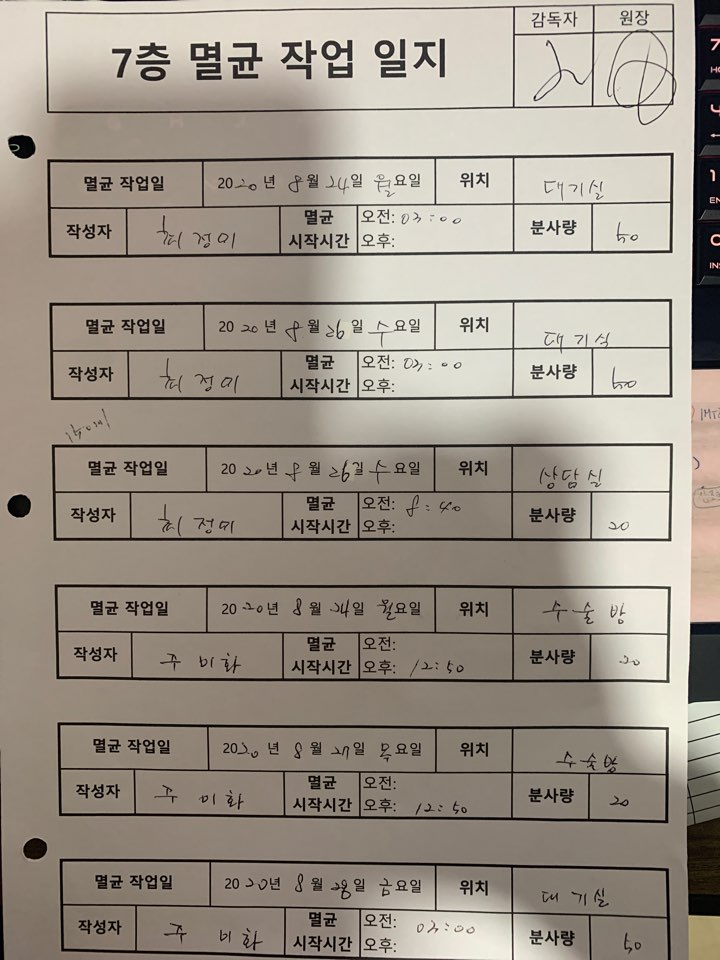 7층 멸균 작업 일지
감독자 원장
멸균 작업일 2020년 8월 24일 월요일 위치 대기실
작성자 최정미 멸균 시작시간 오전: 03:00 오후: 분사량 50
멸균 작업일 2020년 8월 26일 수요일 위치 대기실
작성자 최정미 멸균 시작시간 오전: 03:00 오후: 분사량 50
멸균 작업일 2020년 8월 26일 수요일 위치 상담실
작성자 최정미 멸균 시작시간 오전: 8:40 오후: 분사량 20
멸균 작업일 2020년 8월 24일 월요일 위치 수술방
작성자 주미화 멸균 시작시간 오전: 오후: 12:50 분사량 20
멸균 작업일 2020년 8월 27일 목요일 위치 수술방
작성자 주미화 멸균 시작시간 오전: 오후: 12:50 분사량 20
멸균 작업일 2020년 8월 28일 금요일 위치 대기실
작성자 주미화 멸균 시작시간 오전: 03:00 오후: 분사량 50